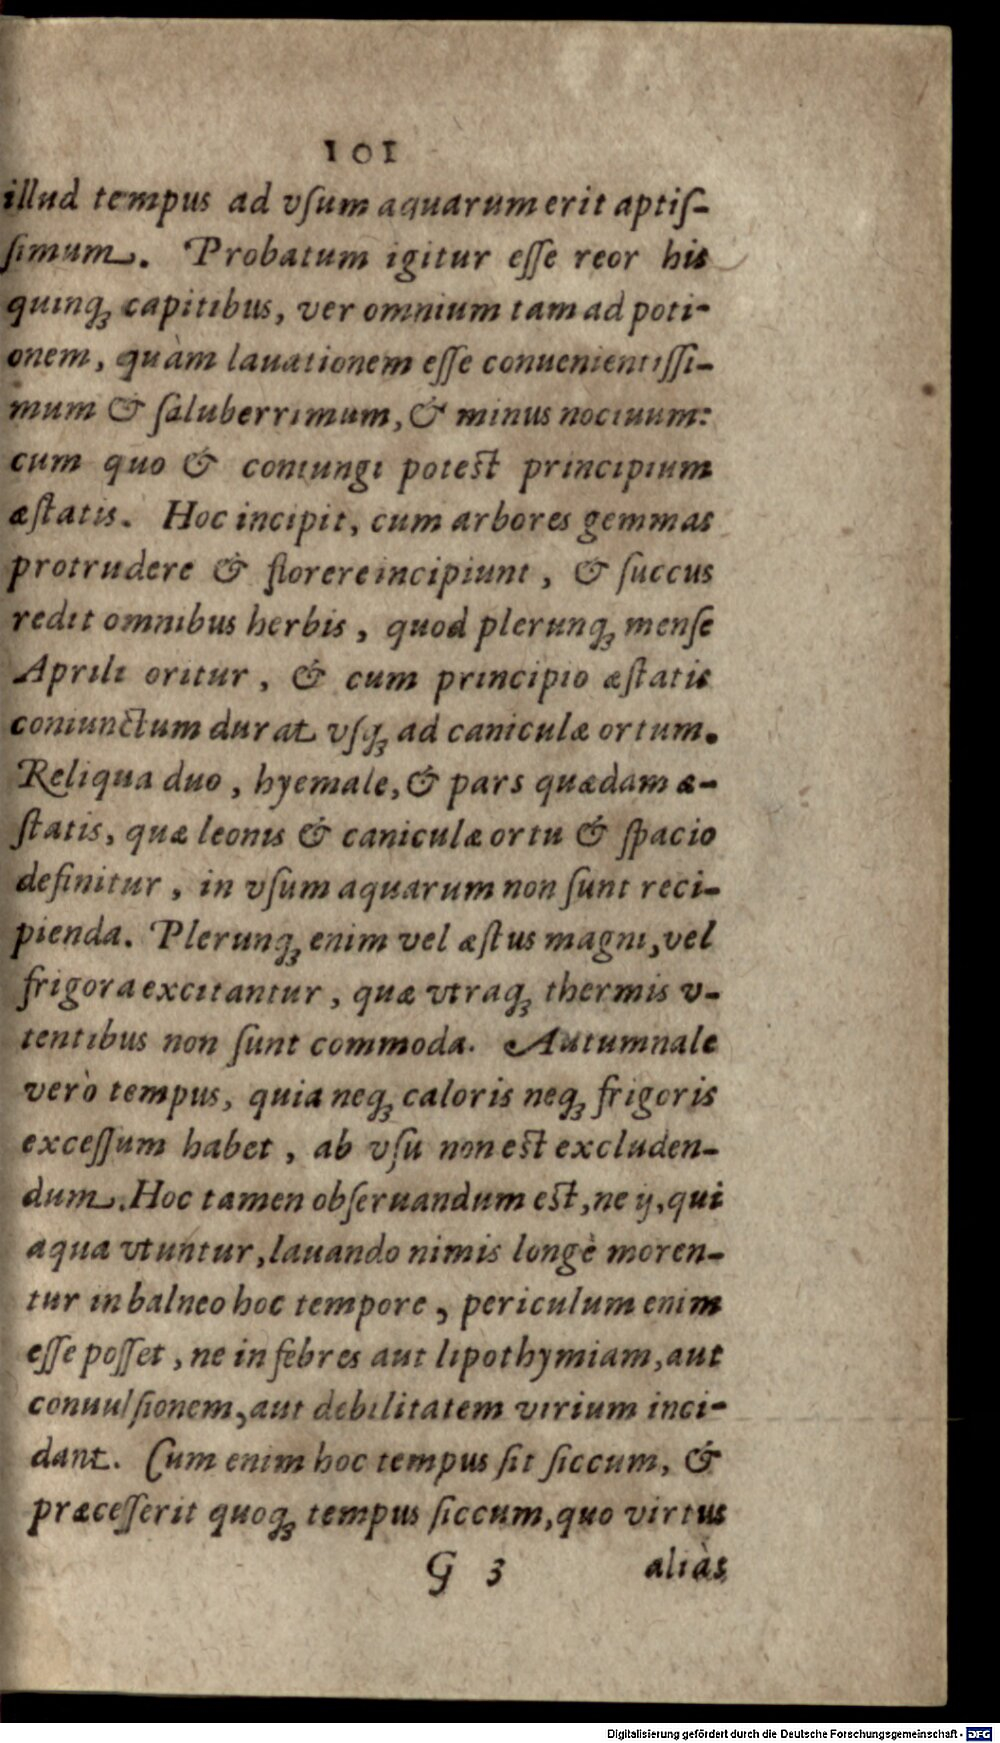 101
illud tempus ad vſum aquarum erit aptiſ-
ſimum. Probatum igitur eſſe reor his
quinq́ꝫ capitibus, ver omnium tam ad poti-
onem, quàm lauationem eſſe conuenientiſſi-
mum & ſaluberrimum, & minus nociuum:
cum quo & coniungi poteſt principium
æſtatis. Hoc incipit, cum arbores gemmas
protrudere & florere incipiunt, & ſuccus
redit omnibus herbis, quod plerunqꝫ menſe
Aprili oritur, & cum principio æſtatis
coniunctum durat vſqꝫ ad caniculæ ortum.
Reliqua duo, hyemale, & pars quædam æ-
ſtatis, quæ leonis & caniculæ ortu & ſpacio
definitur, in vſum aquarum non ſunt reci-
pienda. Plerunqꝫ enim vel æſtus magni, vel
frigora excitantur, quæ vtraqꝫ thermis v-
tentibus non ſunt commoda. Autumnale
verò tempus, quia neqꝫ caloris neqꝫ frigoris
exceſſum habet, ab vſu non eſt excluden-
dum. Hoc tamen obſeruandum eſt, ne ij, qui
aqua vtuntur, lauando nimis longè moren-
tur in balneo hoc tempore, periculum enim
eſſe poſſet, ne in febres aut lipothymiam, aut
conuulſionem, aut debilitatem virium inci-
dant. Cum enim hoc tempus ſit ſiccum, &
præceſſerit quoqꝫ tempus ſiccum, quo virtus
G 3 aliàs
Digitalisierung gefördert durch die Deutsche Forschungsgemeinschaft - DFG